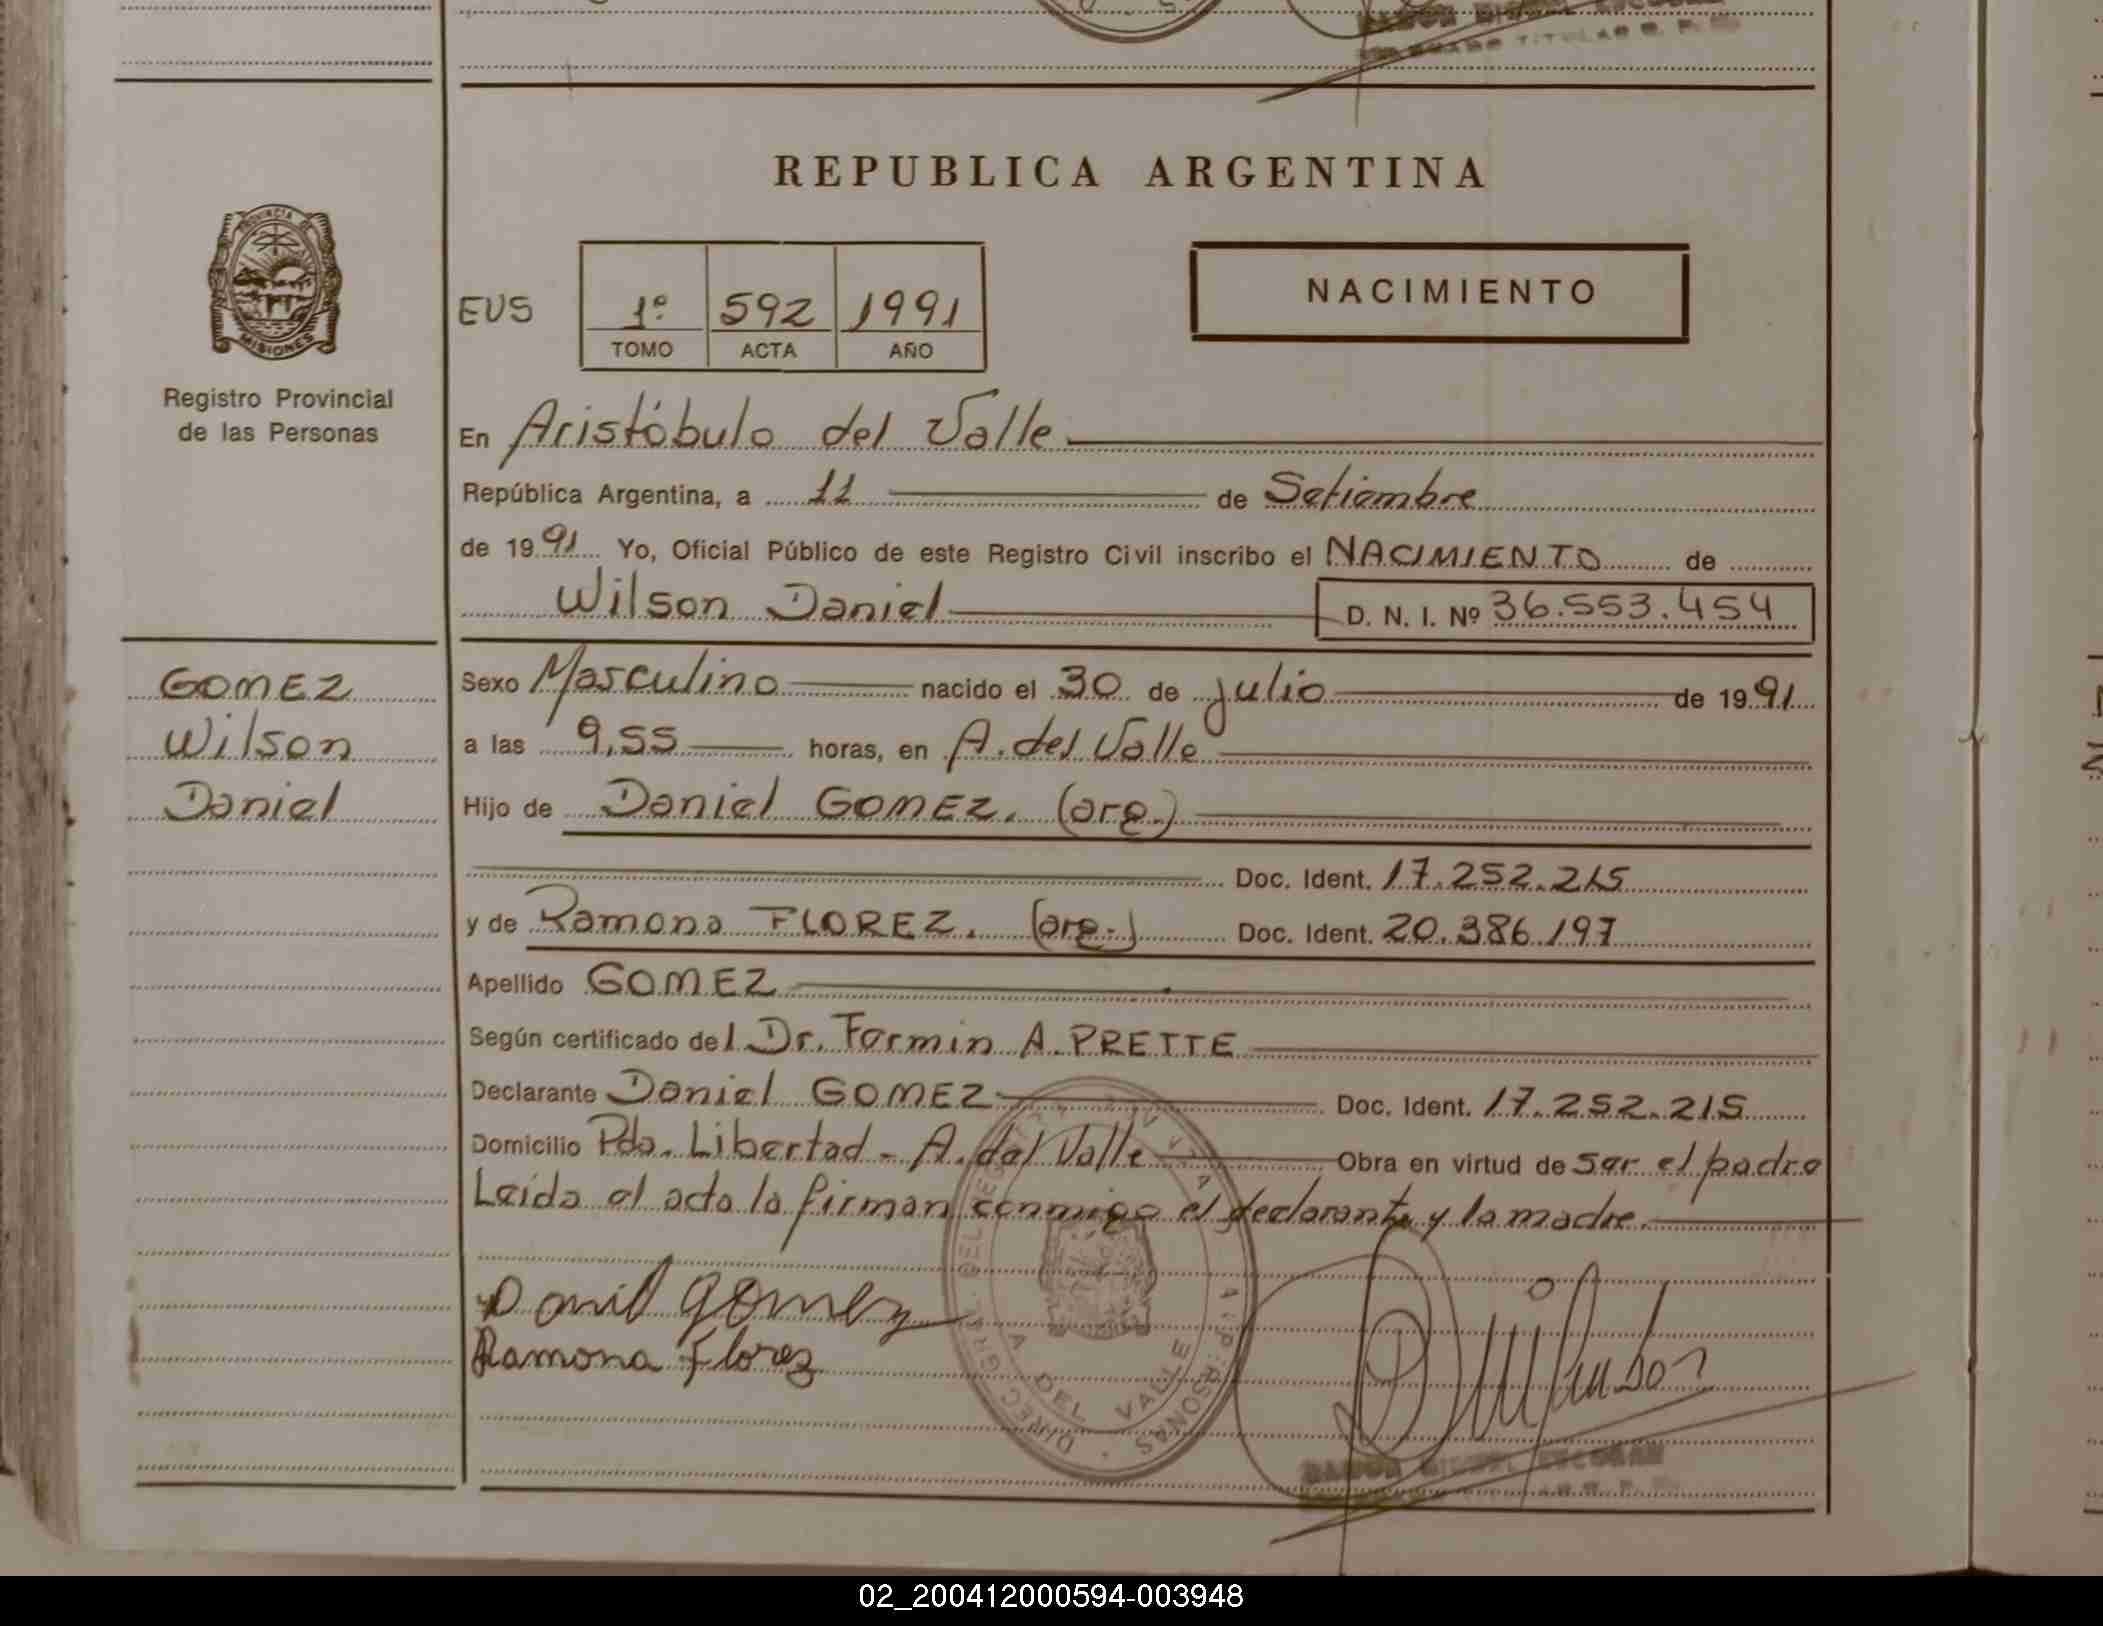 REPUBLICA ARGENTINA
PROVINCIA DE
MISIONES
Registro Provincial
de las Personas
EUS
1º 592 1991
TOMO ACTA AÑO
NACIMIENTO
En Aristóbulo del Valle
República Argentina, a 11 de Setiembre
de 1991 Yo, Oficial Público de este Registro Civil inscribo el NACIMIENTO de
Wilson Daniel D. N. I. Nº 36.553.454
GOMEZ
Wilson
Daniel
Sexo Masculino nacido el 30 de julio de 1991
a las 9,55 horas, en A. del Valle
Hijo de Daniel GOMEZ. (arg.)
Doc. Ident. 17.252.215
y de Ramona FLOREZ. (arg.) Doc. Ident. 20.386.197
Apellido GOMEZ
Según certificado del Dr. Fermin A. PRETTE
Declarante Daniel GOMEZ Doc. Ident. 17.252.215
Domicilio Pdo. Libertad - A. del Valle Obra en virtud de ser el padre
Leida el acta la firman conmigo el declarante y la madre.
Danil gomez
Ramona Florez
A DEL VALLE
RAMON MIGUEL ESCOBAR
02_200412000594-003948